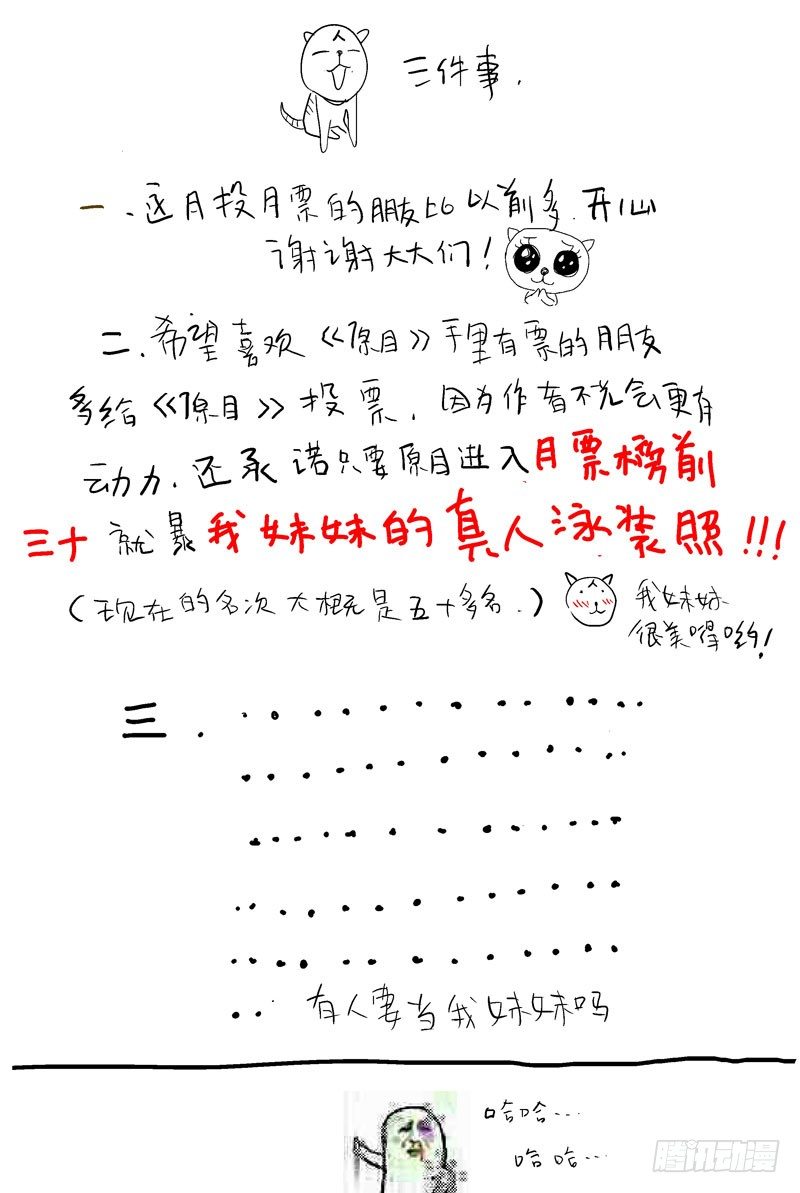 三件事.
一、这月投月票的朋友比以前多.开心
谢谢大大们!
二、希望喜欢《原目》手里有票的朋友
多给《原目》投票.因为作者不光会更有
动力.还承诺只要原目进入月票榜前
三十就暴我妹妹的真人泳装照!!!
(现在的名次大概是五十多名.)
我妹妹
很美嘚哟!
三.
有人要当我妹妹吗
哈哈...
哈哈...
腾讯动漫